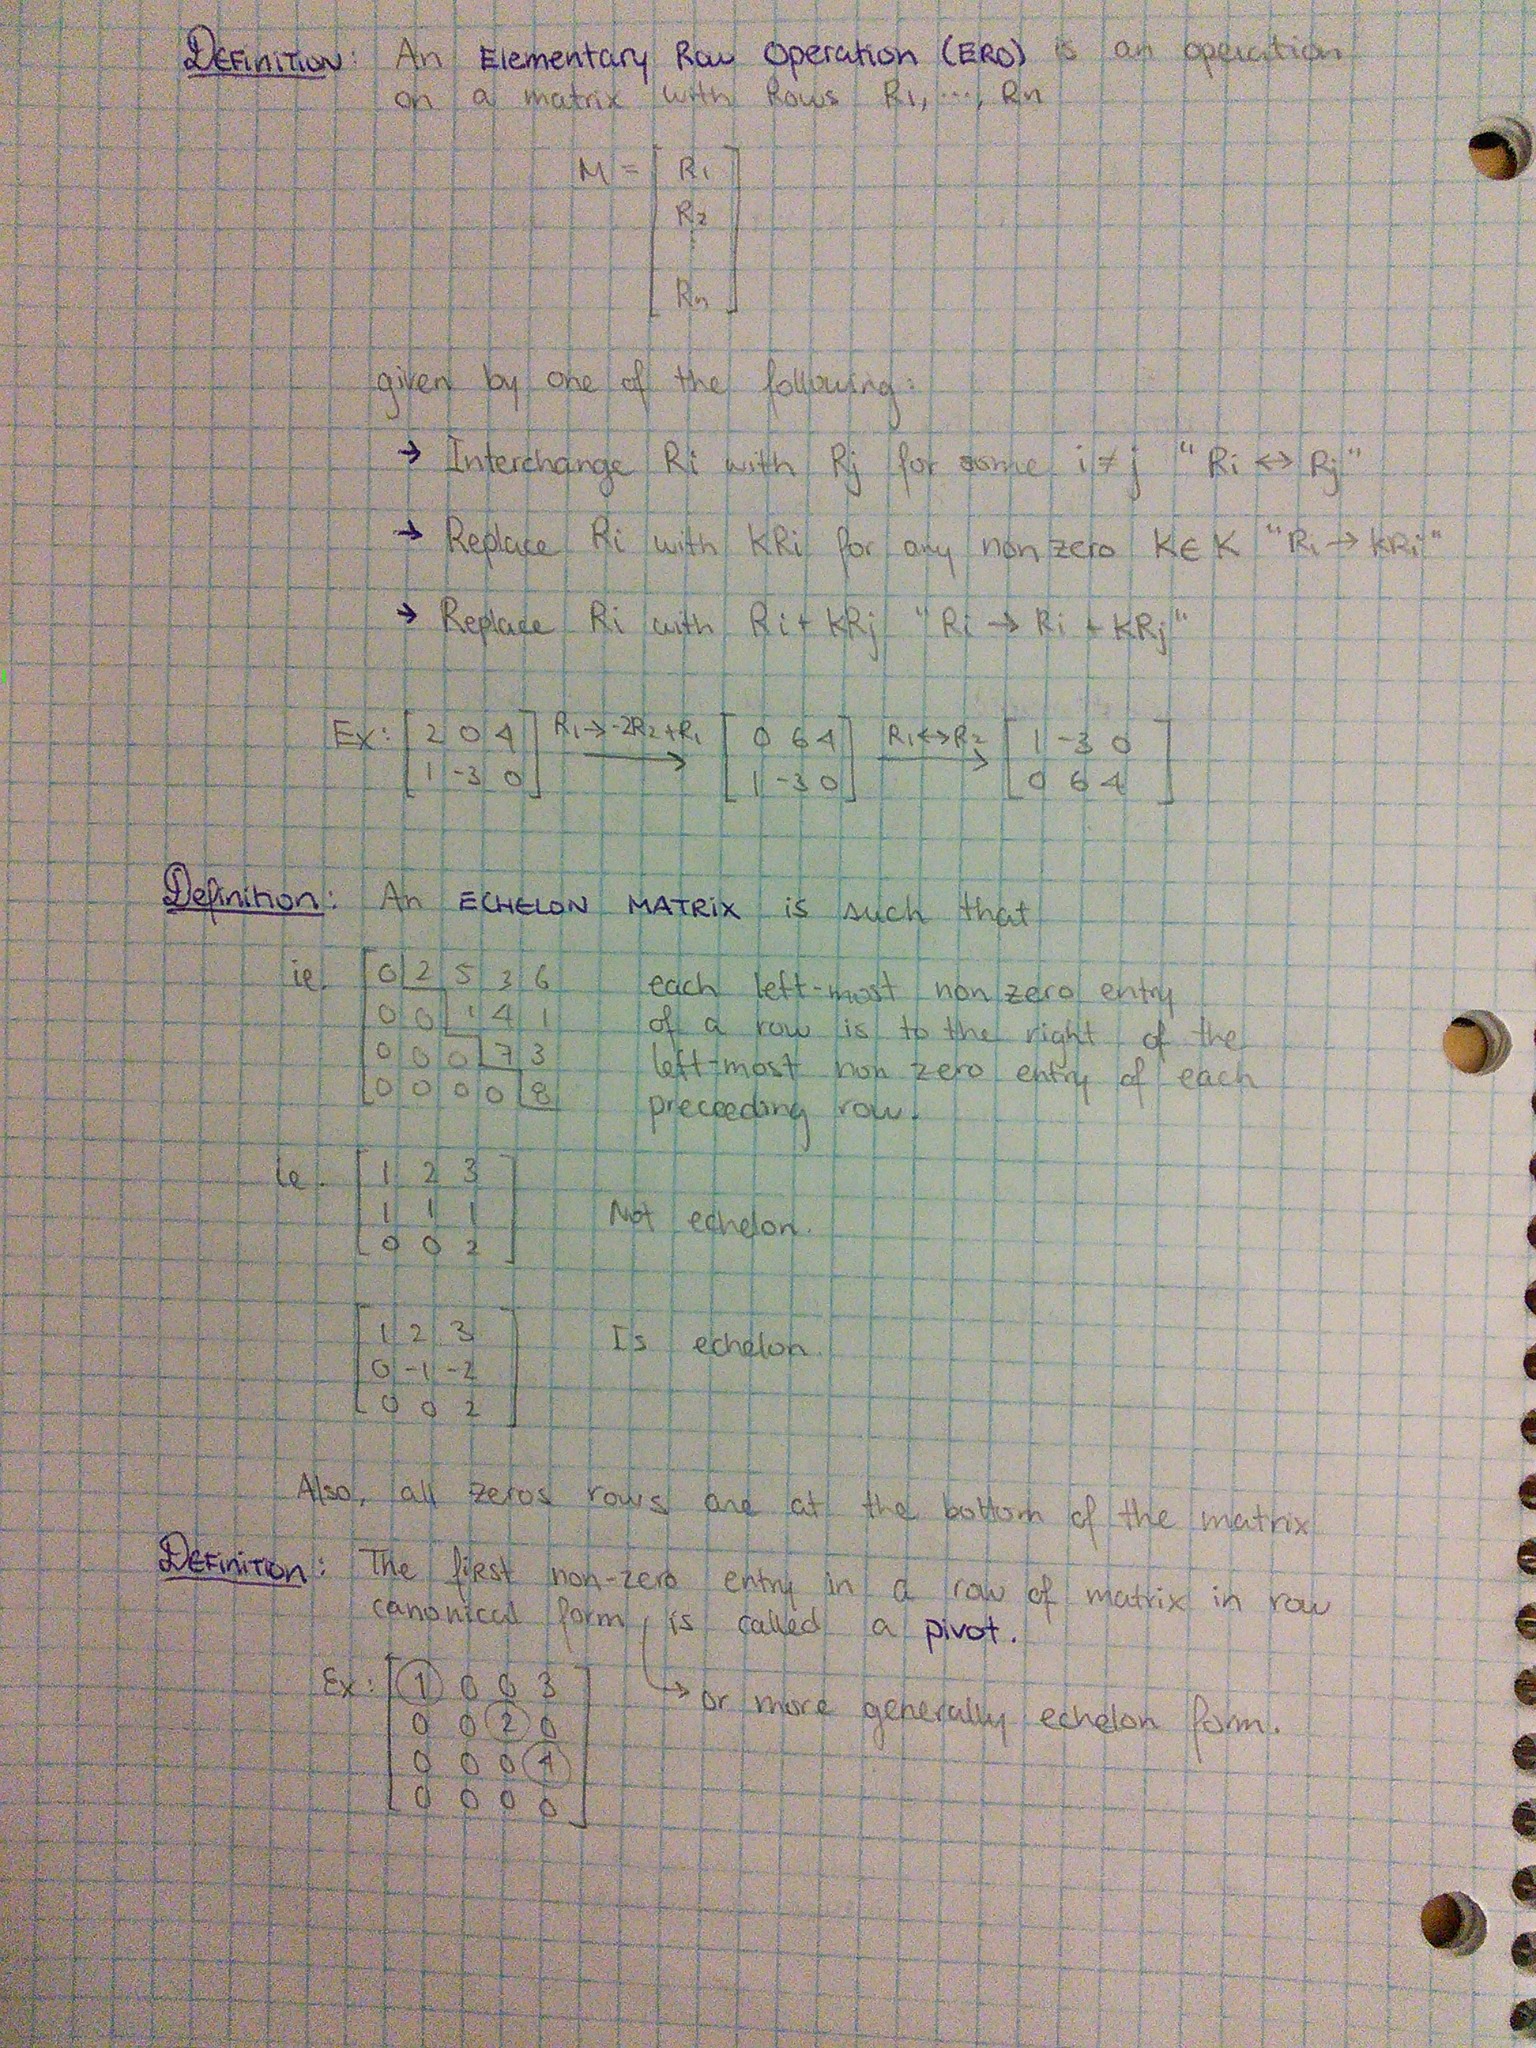 DEFINITION: An Elementary Row Operation (ERO) is an operation
on a matrix with Rows R1, ..., Rn
M = [ R1
R2
⋮
Rn ]
given by one of the following:
→ Interchange Ri with Rj for some i ≠ j "Ri ↔ Rj"
→ Replace Ri with KRi for any non zero K ∈ K "Ri → kRi"
→ Replace Ri with Ri + KRj "Ri → Ri + KRj"
Ex: [ 2 0 4 ] R1 → -2R2 + R1 [ 0 6 4 ] R1 ↔ R2 [ 1 -3 0 ]
[ 1 -3 0 ] [ 1 -3 0 ] [ 0 6 4 ]
Definition: An ECHELON MATRIX is such that
ie. [ 0 2 5 3 6 each left-most non zero entry
0 0 1 4 1 of a row is to the right of the
0 0 0 7 3 left-most non zero entry of each
0 0 0 0 8 preceeding row.
ie. [ 1 2 3 ]
1 1 1 Not echelon.
0 0 2
[ 1 2 3 ] Is echelon.
0 -1 -2
0 0 2
Also, all zeros rows are at the bottom of the matrix
DEFINITION: The first non-zero entry in a row of matrix in row
canonical form, is called a pivot.
Ex: [ 1 0 0 3 ] → or more generally echelon form.
0 0 2 0
0 0 0 4
0 0 0 0